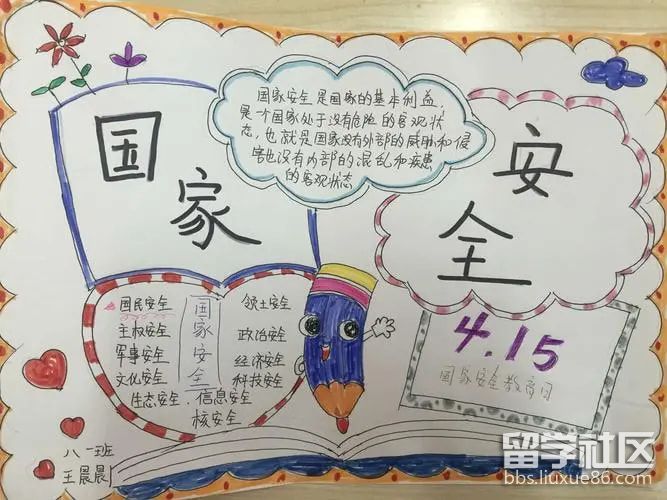 国家
安全
国家安全是国家的基本利益,
是一个国家处于没有危险的客观状
态,也就是国家没有外部的威胁和侵
害也没有内部的混乱和疾患
的客观状态
国家安全
国民安全
主权安全
军事安全
文化安全
生态安全、信息安全
核安全
领土安全
政治安全
经济安全
科技安全
4.15
国家安全教育日
八一班
王晨晨
留学社区
bbs.liuxue86.com